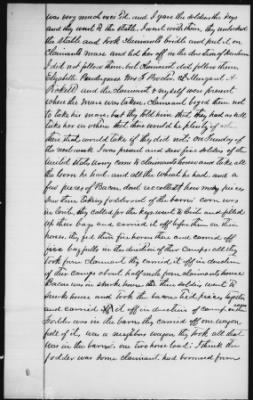 was very much excited and I gave the soldier the keys
and they went to the stable. I went with them, they unlocked
the stable and took Claimants bridle and put it on
Claimants mare and led her off in the direction of
I did not follow them, but Claimant did follow them.
Elizabeth Mrs S & Margaret A.
Pickett and the claimant & myself were present
when the mare was taken. Claimant begged them not
to take his mare, but they told him that they had as well
take her as others that there would be plenty of
there that would take if they did not. On Tuesday of
the next week I was present and saw five soldiers of the
United States Army come to claimants house and take all
the corn he had, and all the wheat he had, and a
few pieces of Bacon, dont recollect how many pieces
Saw them taking fodder out of the barn: corn was
in crib, they called for the keys went to crib and filled
up their bags and carried it off before them on their
horses. they fed their horses there and carried off
five bags full in the direction of their camps: all they
took from Claimant they carried it off in direction
of this camps about half mile from claimants house
Bacon was in smoke house the soldiers went to
smoke house and took the bacon Tied pieces together
and carried it off in direction of camp with
Fodder was in the barn they carried off one wagon
full of it, was a neighbors wagon they took all that
was in the barn, one two horse load; I think the
fodder was some claimant had borrowed from